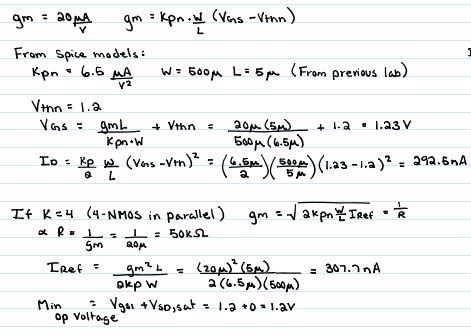 gm = 20 μA/V   gm = Kpn · W/L (VGS - Vthn)
From spice models:
Kpn = 6.5 μA/V²   W = 500μ L = 5μ (From previous lab)
Vthn = 1.2
VGS = gmL/Kpn·W + Vthn = 20μ(5μ)/500μ(6.5μ) + 1.2 = 1.23V
ID = Kp/2 W/L (VGS - Vth)² = (6.5μ/2)(500μ/5μ)(1.23 - 1.2)² = 292.5nA
If K=4 (4-NMOS in parallel)   gm = √2kpn W/L IRef = 1/R
∝ R = 1/gm = 1/20μ = 50KΩ
IRef = gm² L/2KP W = (20μ)²(5μ)/2(6.5μ)(500μ) = 307.7nA
Min op voltage = Vgs1 + VSD,sat = 1.2 + 0 = 1.2V